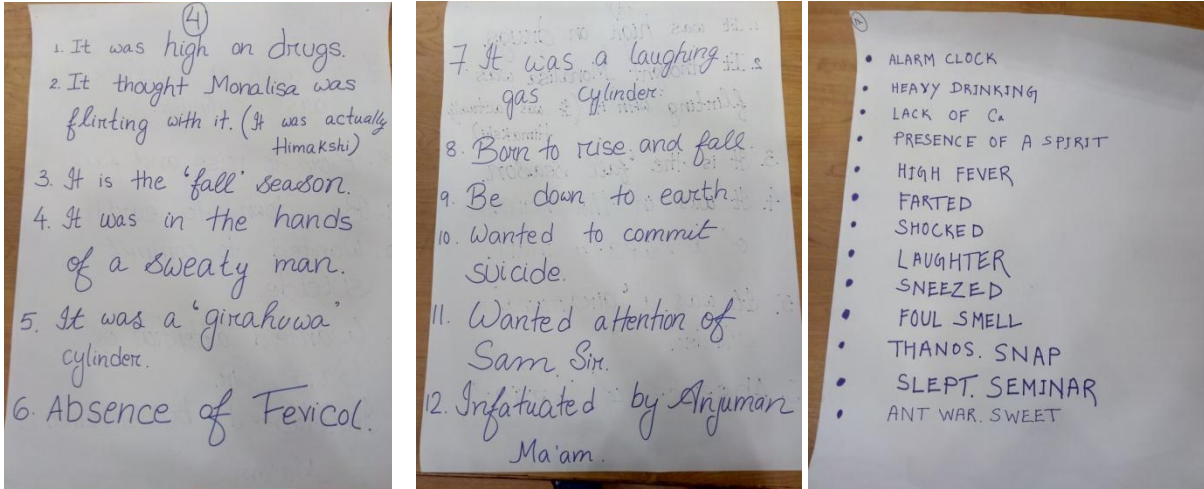 4
1. It was high on drugs.
2. It thought Monalisa was
flirting with it. (It was actually
Himakshi)
3. It is the 'fall' season.
4. It was in the hands
of a sweaty man.
5. It was a 'girahuwa'
cylinder.
6. Absence of Fevicol.
7. It was a laughing
gas cylinder.
8. Born to rise and fall.
9. Be down to earth.
10. Wanted to commit
suicide.
11. Wanted attention of
Sam Sir.
12. Infatuated by Anjuman
Ma'am.
• ALARM CLOCK
• HEAVY DRINKING
• LACK OF Ca
• PRESENCE OF A SPIRIT
• HIGH FEVER
• FARTED
• SHOCKED
• LAUGHTER
• SNEEZED
• FOUL SMELL
• THANOS. SNAP
• SLEPT. SEMINAR
• ANT WAR. SWEET